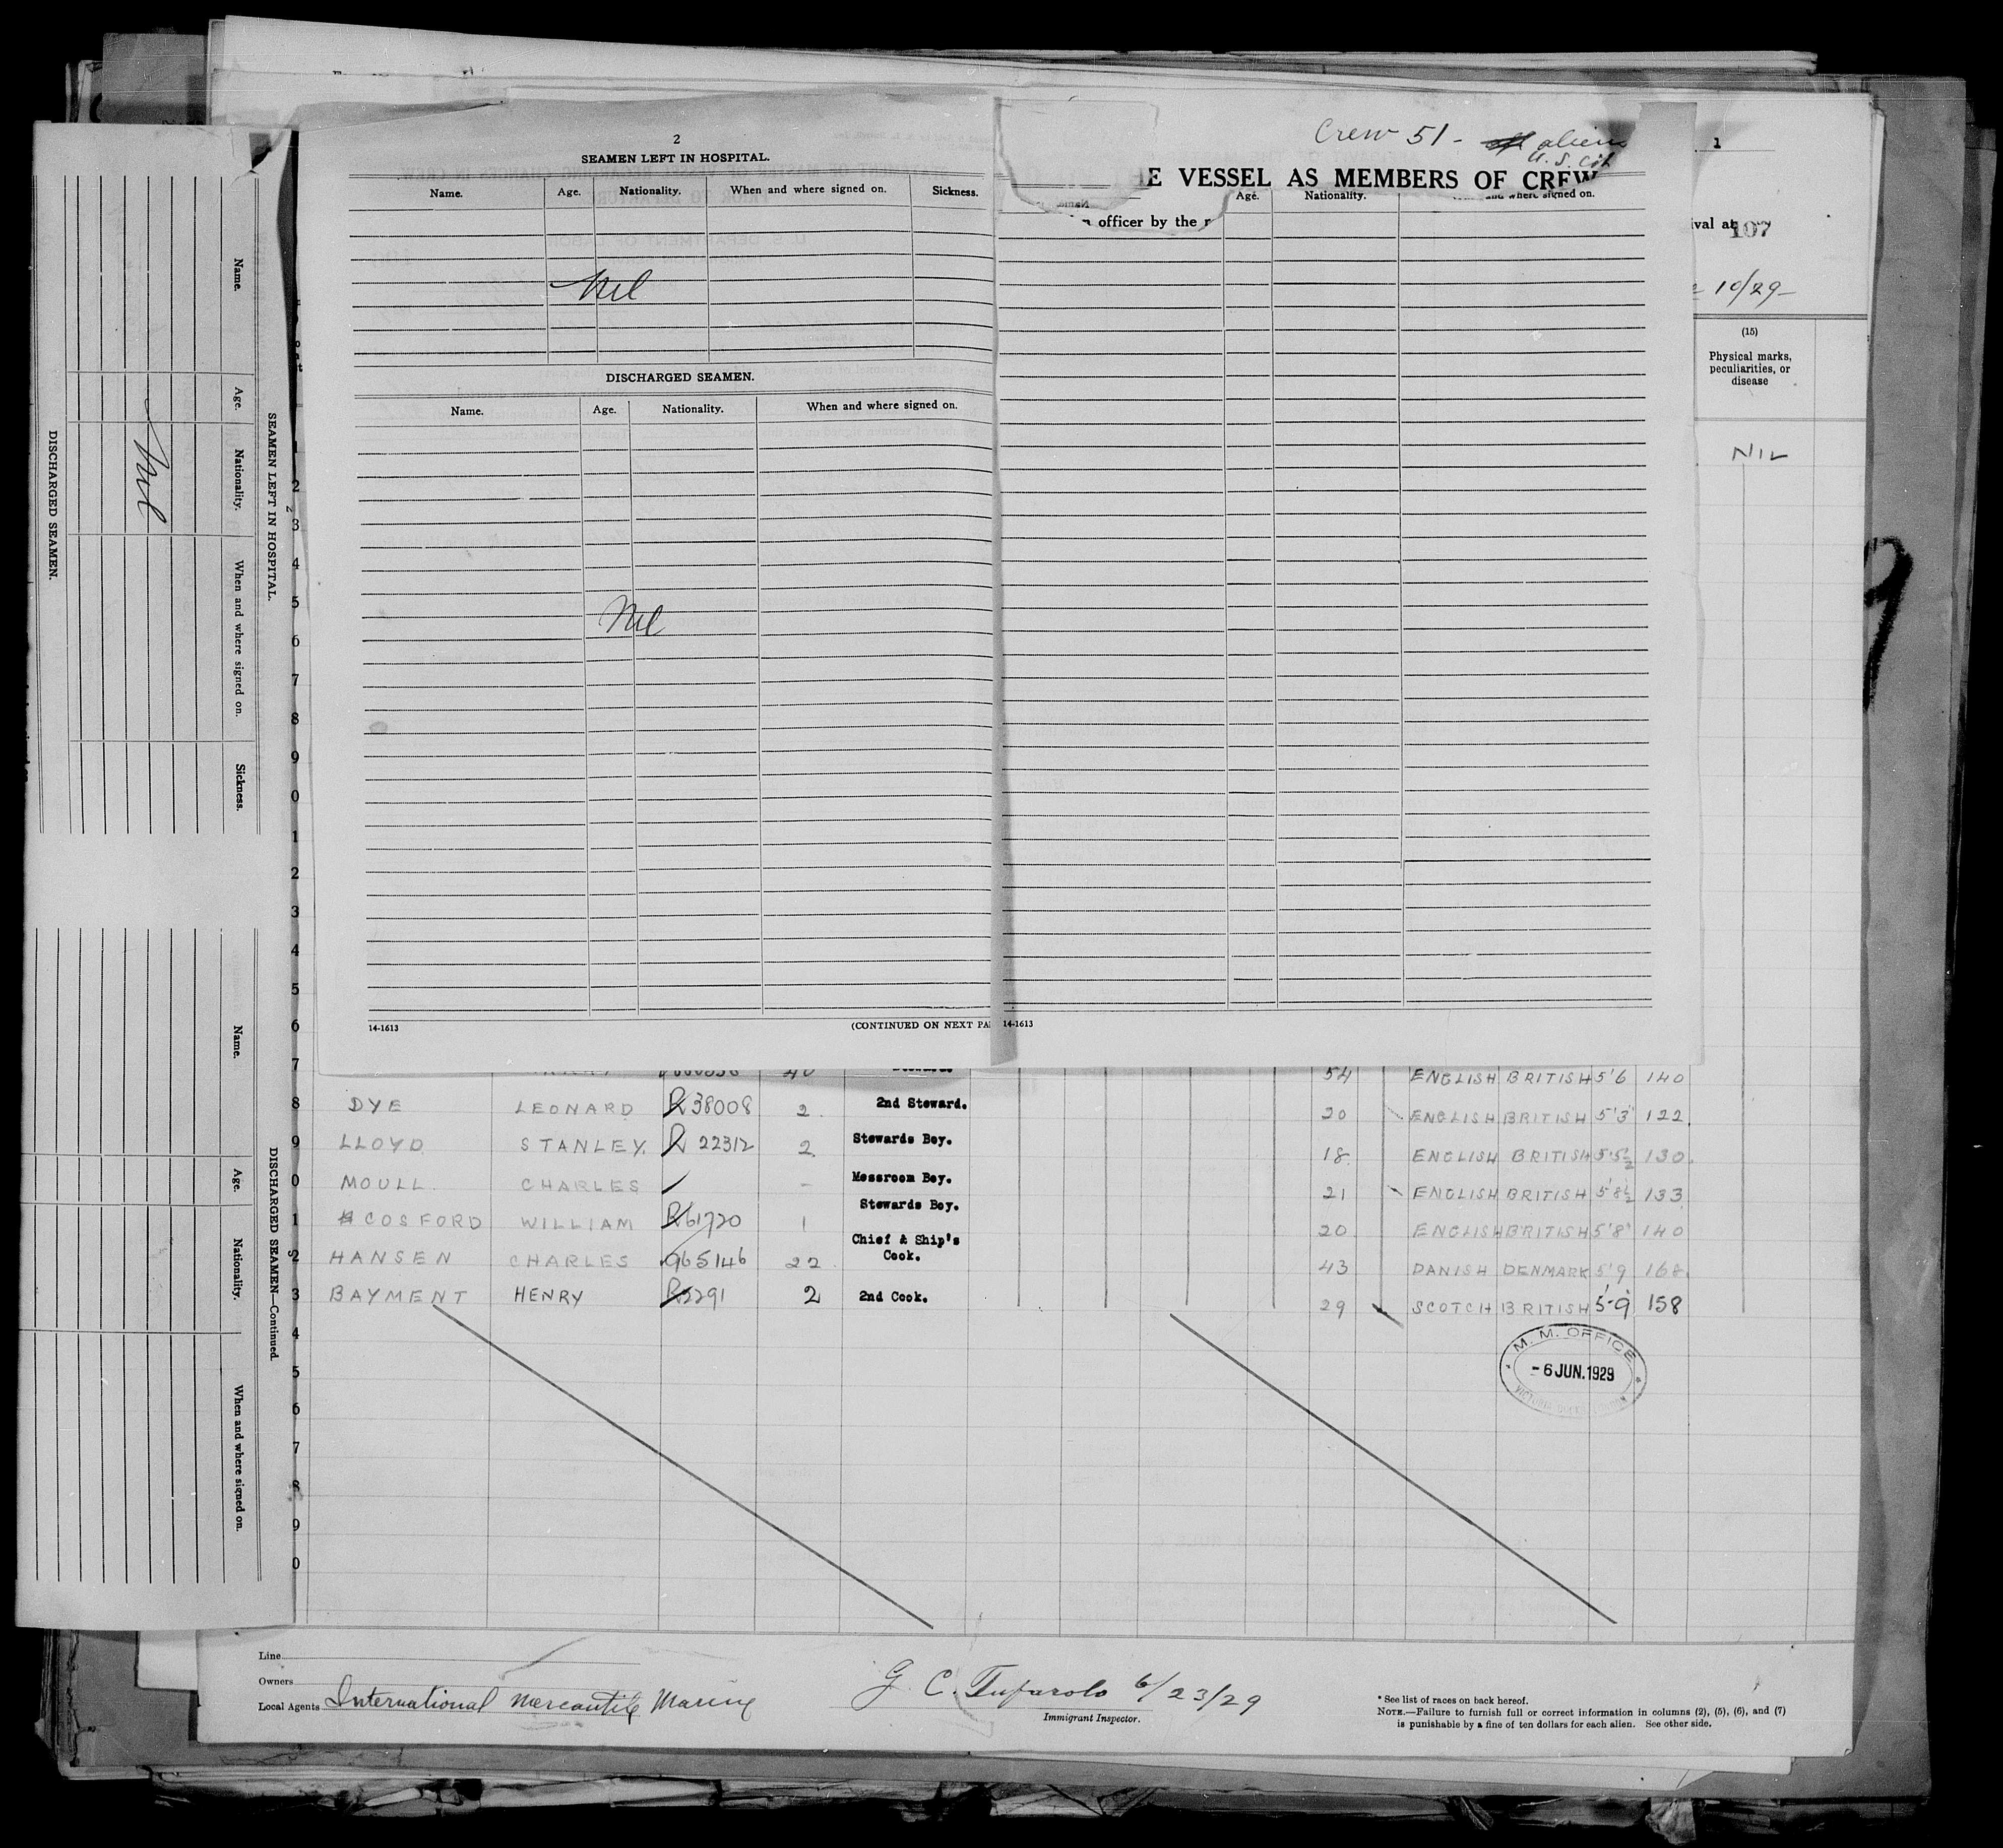 Crew 51 - aliens
U. S. Cit
2
SEAMEN LEFT IN HOSPITAL.
Name. Age. Nationality. When and where signed on. Sickness.
Nil
DISCHARGED SEAMEN.
Name. Age. Nationality. When and where signed on.
Nil
14-1613
(CONTINUED ON NEXT PA
E VESSEL AS MEMBERS OF CREW
Age. Nationality. and where signed on.
officer by the
14-1613
1
ival at 107
10/29
(15)
Physical marks,
peculiarities, or
disease
NIL
SEAMEN LEFT IN HOSPITAL.
Name. Age. Nationality. When and where signed on. Sickness.
Nil
DISCHARGED SEAMEN.
DISCHARGED SEAMEN—Continued.
Name. Age. Nationality. When and where signed on.
1
2
3
4
5
6
7
8
9
0
1
2
3
4
5
6
7 40 54 ENGLISH BRITISH 5'6 140
8 DYE LEONARD R38008 2 2nd Steward. 20 ENGLISH BRITISH 5'3" 122
9 LLOYD STANLEY. R 22312 2 Stewards Boy. 18 ENGLISH BRITISH 5'5½ 130
0 MOULL CHARLES - Messroom Boy. 21 ENGLISH BRITISH 5'8½ 133
1 COSFORD WILLIAM R61720 1 Stewards Boy. 20 ENGLISH BRITISH 5'8" 140
2 HANSEN CHARLES 965146 22 Chief & Ship's
Cook. 43 DANISH DENMARK 5'9 168
3 BAYMENT HENRY R5291 2 2nd Cook. 29 SCOTCH BRITISH 5-9 158
4
5
6
7
8
9
0
M. M. OFFICE
-6 JUN. 1929
Line
Owners
Local Agents International Mercantile Marine
G. C. Tufarolo 6/23/29
Immigrant Inspector.
* See list of races on back hereof.
NOTE.—Failure to furnish full or correct information in columns (2), (5), (6), and (7)
is punishable by a fine of ten dollars for each alien. See other side.